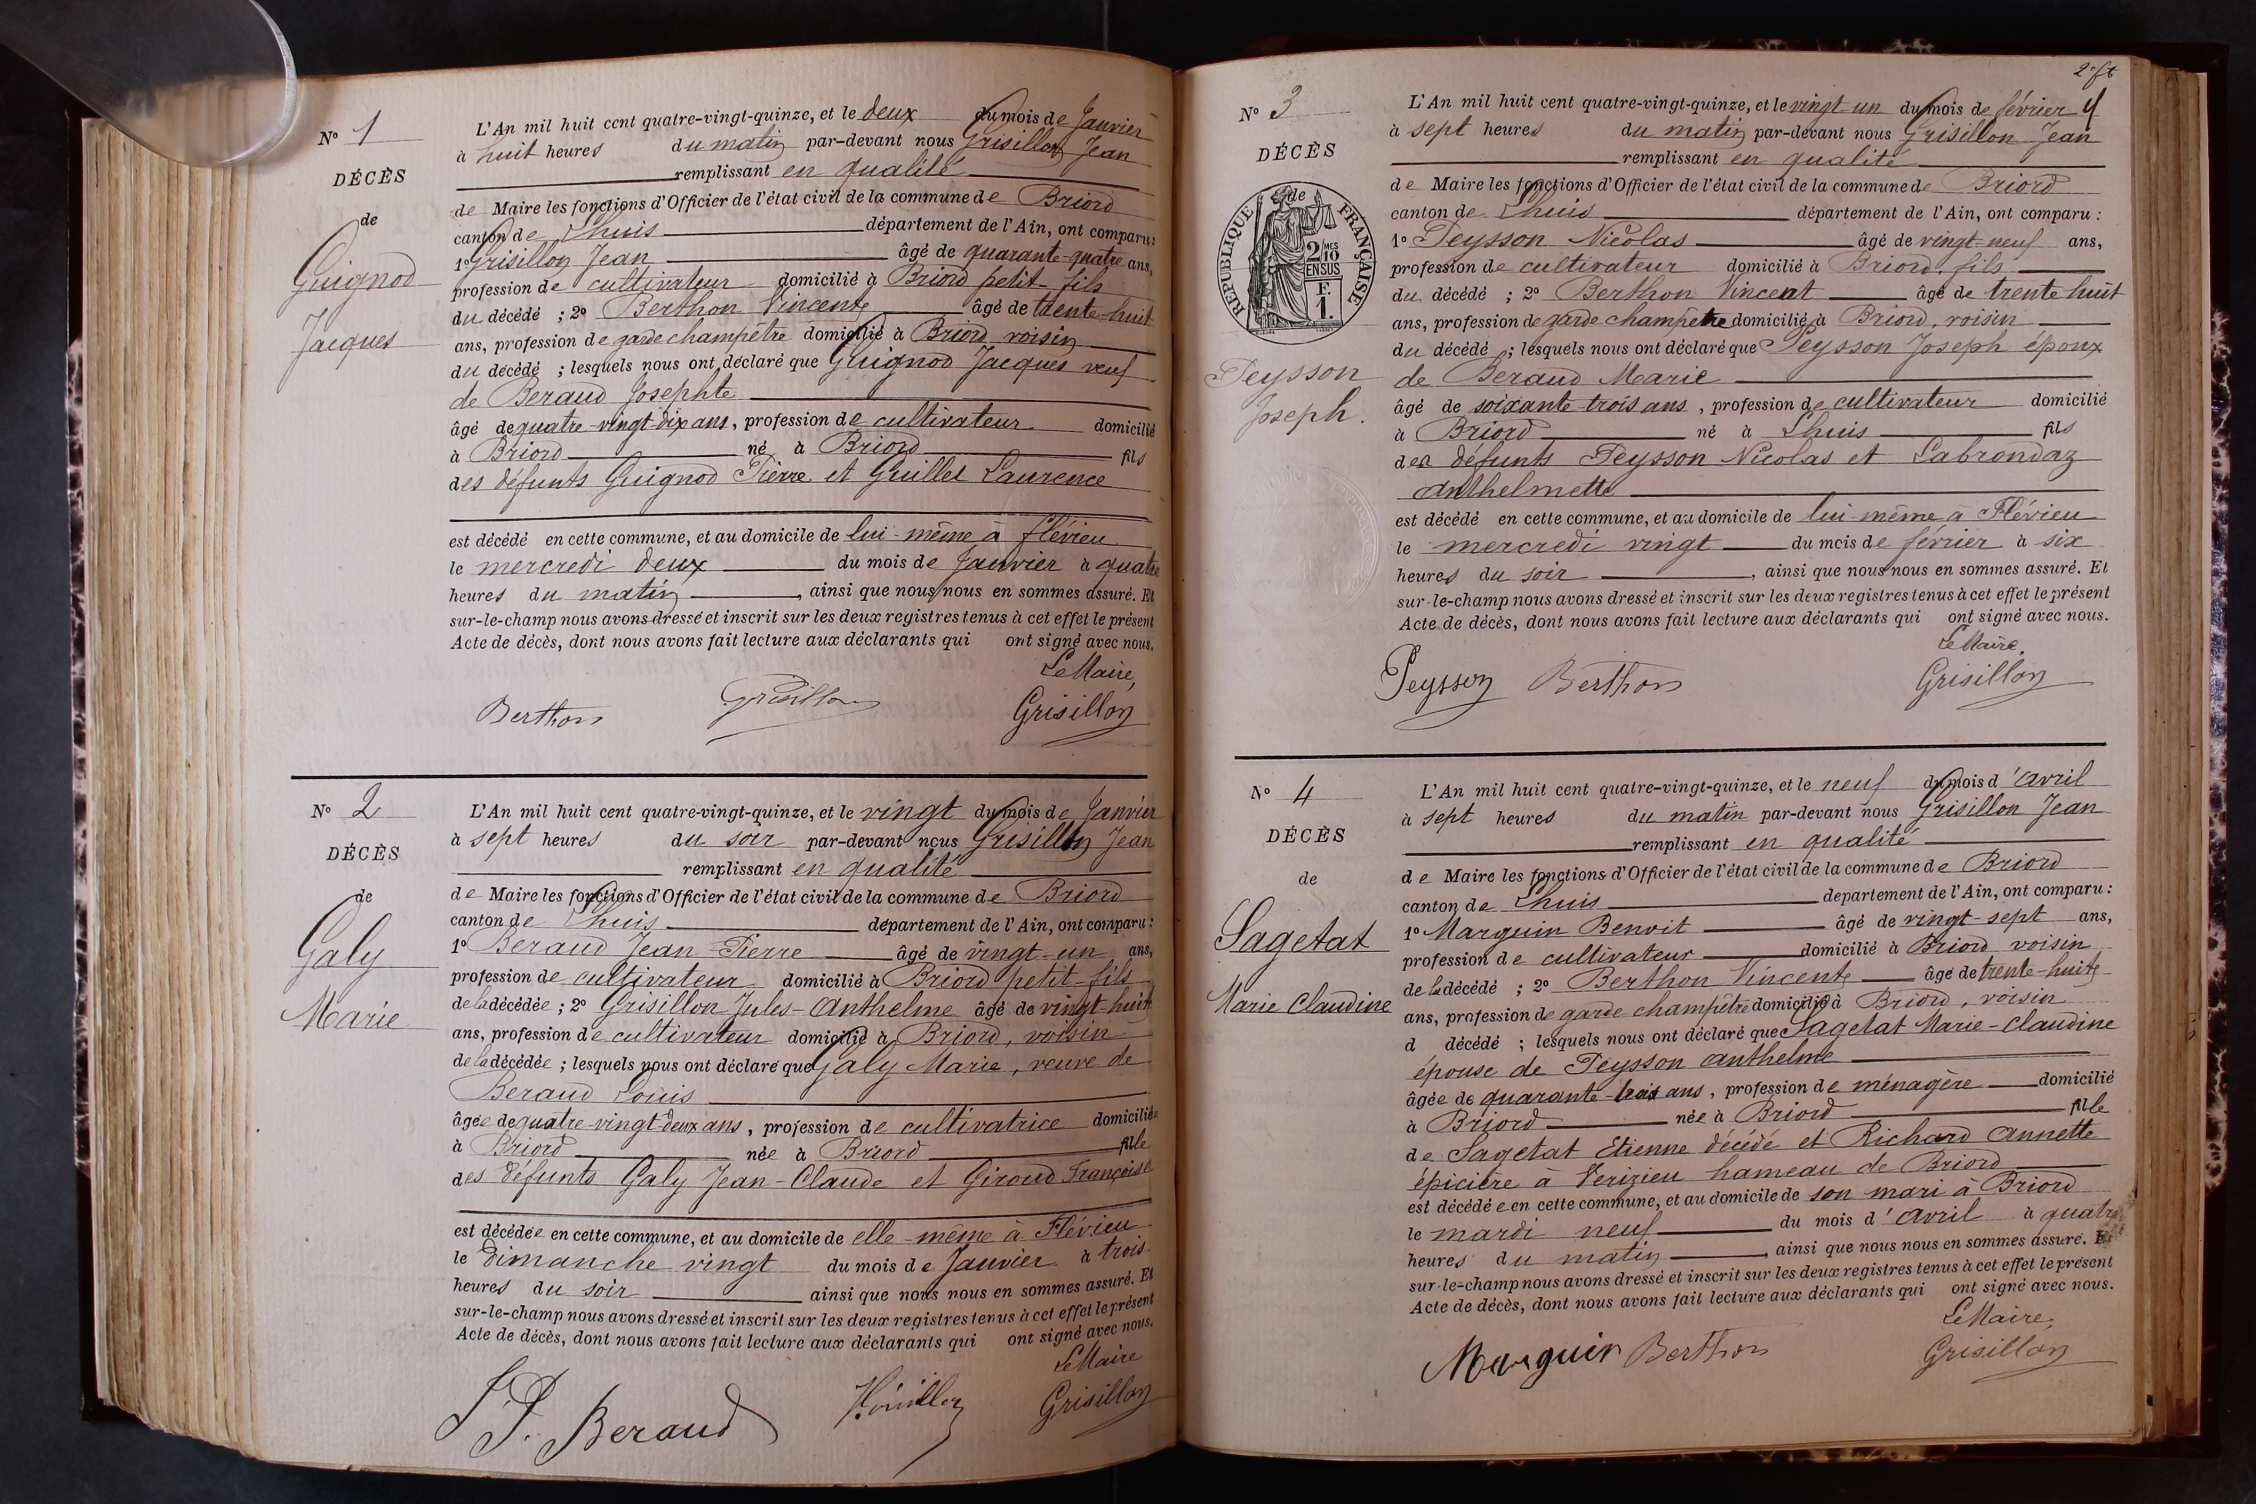 N° 1
DÉCÈS
de
Guignod
Jacques
L'An mil huit cent quatre-vingt-quinze, et le deux du mois de Janvier
à huit heures du matin par-devant nous Grisillon Jean
remplissant en qualité
de Maire les fonctions d'Officier de l'état civil de la commune de Briord
canton de Lhuis département de l'Ain, ont comparu :
1° Grisillon Jean âgé de quarante-quatre ans,
profession de cultivateur domicilié à Briord petit-fils
du décédé ; 2° Berthon Vincent âgé de trente-huit
ans, profession de garde champêtre domicilié à Briord, voisin
du décédé ; lesquels nous ont déclaré que Guignod Jacques veuf
de Beraud Josephte
âgé de quatre-vingt-dix ans, profession de cultivateur domicilié
à Briord né à Briord fils
des défunts Guignod Pierre et Guillet Laurence
est décédé en cette commune, et au domicile de lui-même à Flévieu
le mercredi deux du mois de Janvier à quatre
heures du matin, ainsi que nous nous en sommes assuré. Et
sur-le-champ nous avons dressé et inscrit sur les deux registres tenus à cet effet le présent
Acte de décès, dont nous avons fait lecture aux déclarants qui ont signé avec nous.
Le Maire,
Berthon Grisillon Grisillon
N° 2
DÉCÈS
de
Galy
Marie
L'An mil huit cent quatre-vingt-quinze, et le vingt du mois de Janvier
à sept heures du soir par-devant nous Grisillon Jean
remplissant en qualité
de Maire les fonctions d'Officier de l'état civil de la commune de Briord
canton de Lhuis département de l'Ain, ont comparu :
1° Beraud Jean Pierre âgé de vingt-un ans,
profession de cultivateur domicilié à Briord petit-fils
de la décédée ; 2° Grisillon Jules-Anthelme âgé de vingt-huit
ans, profession de cultivateur domicilié à Briord, voisin
de la décédée ; lesquels nous ont déclaré que Galy Marie, veuve de
Beraud Louis
âgée de quatre-vingt-deux ans, profession de cultivatrice domiciliée
à Briord née à Briord fille
des défunts Galy Jean-Claude et Giroud Françoise
est décédée en cette commune, et au domicile de elle-même à Flévieu
le dimanche vingt du mois de Janvier à trois
heures du soir ainsi que nous nous en sommes assuré. Et
sur-le-champ nous avons dressé et inscrit sur les deux registres tenus à cet effet le présent
Acte de décès, dont nous avons fait lecture aux déclarants qui ont signé avec nous.
Le Maire
J. P. Beraud Grisillon
2e ft
N° 3
DÉCÈS
de
RÉPUBLIQUE FRANÇAISE
2/10 MES
EN SUS
F.
1.
Peysson
Joseph.
L'An mil huit cent quatre-vingt-quinze, et le vingt-un du mois de février
à sept heures du matin par-devant nous Grisillon Jean
remplissant en qualité
de Maire les fonctions d'Officier de l'état civil de la commune de Briord
canton de Lhuis département de l'Ain, ont comparu :
1° Peysson Nicolas âgé de vingt-neuf ans,
profession de cultivateur domicilié à Briord, fils
du décédé ; 2° Berthon Vincent âgé de trente huit
ans, profession de garde champêtre domicilié à Briord, voisin
du décédé ; lesquels nous ont déclaré que Peysson Joseph époux
de Beraud Marie
âgé de soixante-trois ans, profession de cultivateur domicilié
à Briord né à Lhuis fils
des défunts Peysson Nicolas et Labrondaz
Anthelmette
est décédé en cette commune, et au domicile de lui-même à Flévieu
le mercredi vingt du mois de février à six
heures du soir, ainsi que nous nous en sommes assuré. Et
sur-le-champ nous avons dressé et inscrit sur les deux registres tenus à cet effet le présent
Acte de décès, dont nous avons fait lecture aux déclarants qui ont signé avec nous.
Le Maire,
Peysson Berthon Grisillon
N° 4
DÉCÈS
de
Sagetat
Marie Claudine
L'An mil huit cent quatre-vingt-quinze, et le neuf du mois d'avril
à sept heures du matin par-devant nous Grisillon Jean
remplissant en qualité
de Maire les fonctions d'Officier de l'état civil de la commune de Briord
canton de Lhuis département de l'Ain, ont comparu :
1° Marguin Benoit âgé de vingt-sept ans,
profession de cultivateur domicilié à Briord voisin
de la décédé ; 2° Berthon Vincent âgé de trente-huit
ans, profession de garde champêtre domicilié à Briord, voisin
d décédé ; lesquels nous ont déclaré que Sagetat Marie-Claudine
épouse de Peysson Anthelme
âgée de quarante-trois ans, profession de ménagère domicilié
à Briord née à Briord fille
de Sagetat Etienne décédé et Richard Annette
épicière à Verizieu hameau de Briord
est décédée en cette commune, et au domicile de son mari à Briord
le mardi neuf du mois d'avril à quatre
heures du matin, ainsi que nous nous en sommes assuré. Et
sur-le-champ nous avons dressé et inscrit sur les deux registres tenus à cet effet le présent
Acte de décès, dont nous avons fait lecture aux déclarants qui ont signé avec nous.
Le Maire,
Marguin Berthon Grisillon